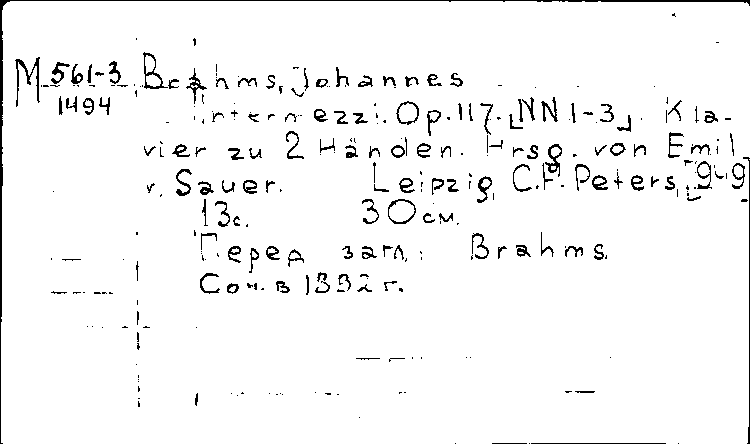 M 561-3 Brahms, Johannes
1494
Intermezzi. Op. 117. [NN 1-3]. Kla-
vier zu 2 Händen. Hrsg. von Emil
v. Sauer. Leipzig, C.F. Peters,
13с. 30 см.
Перед загл.: Brahms.
Соч. в 1892 г.